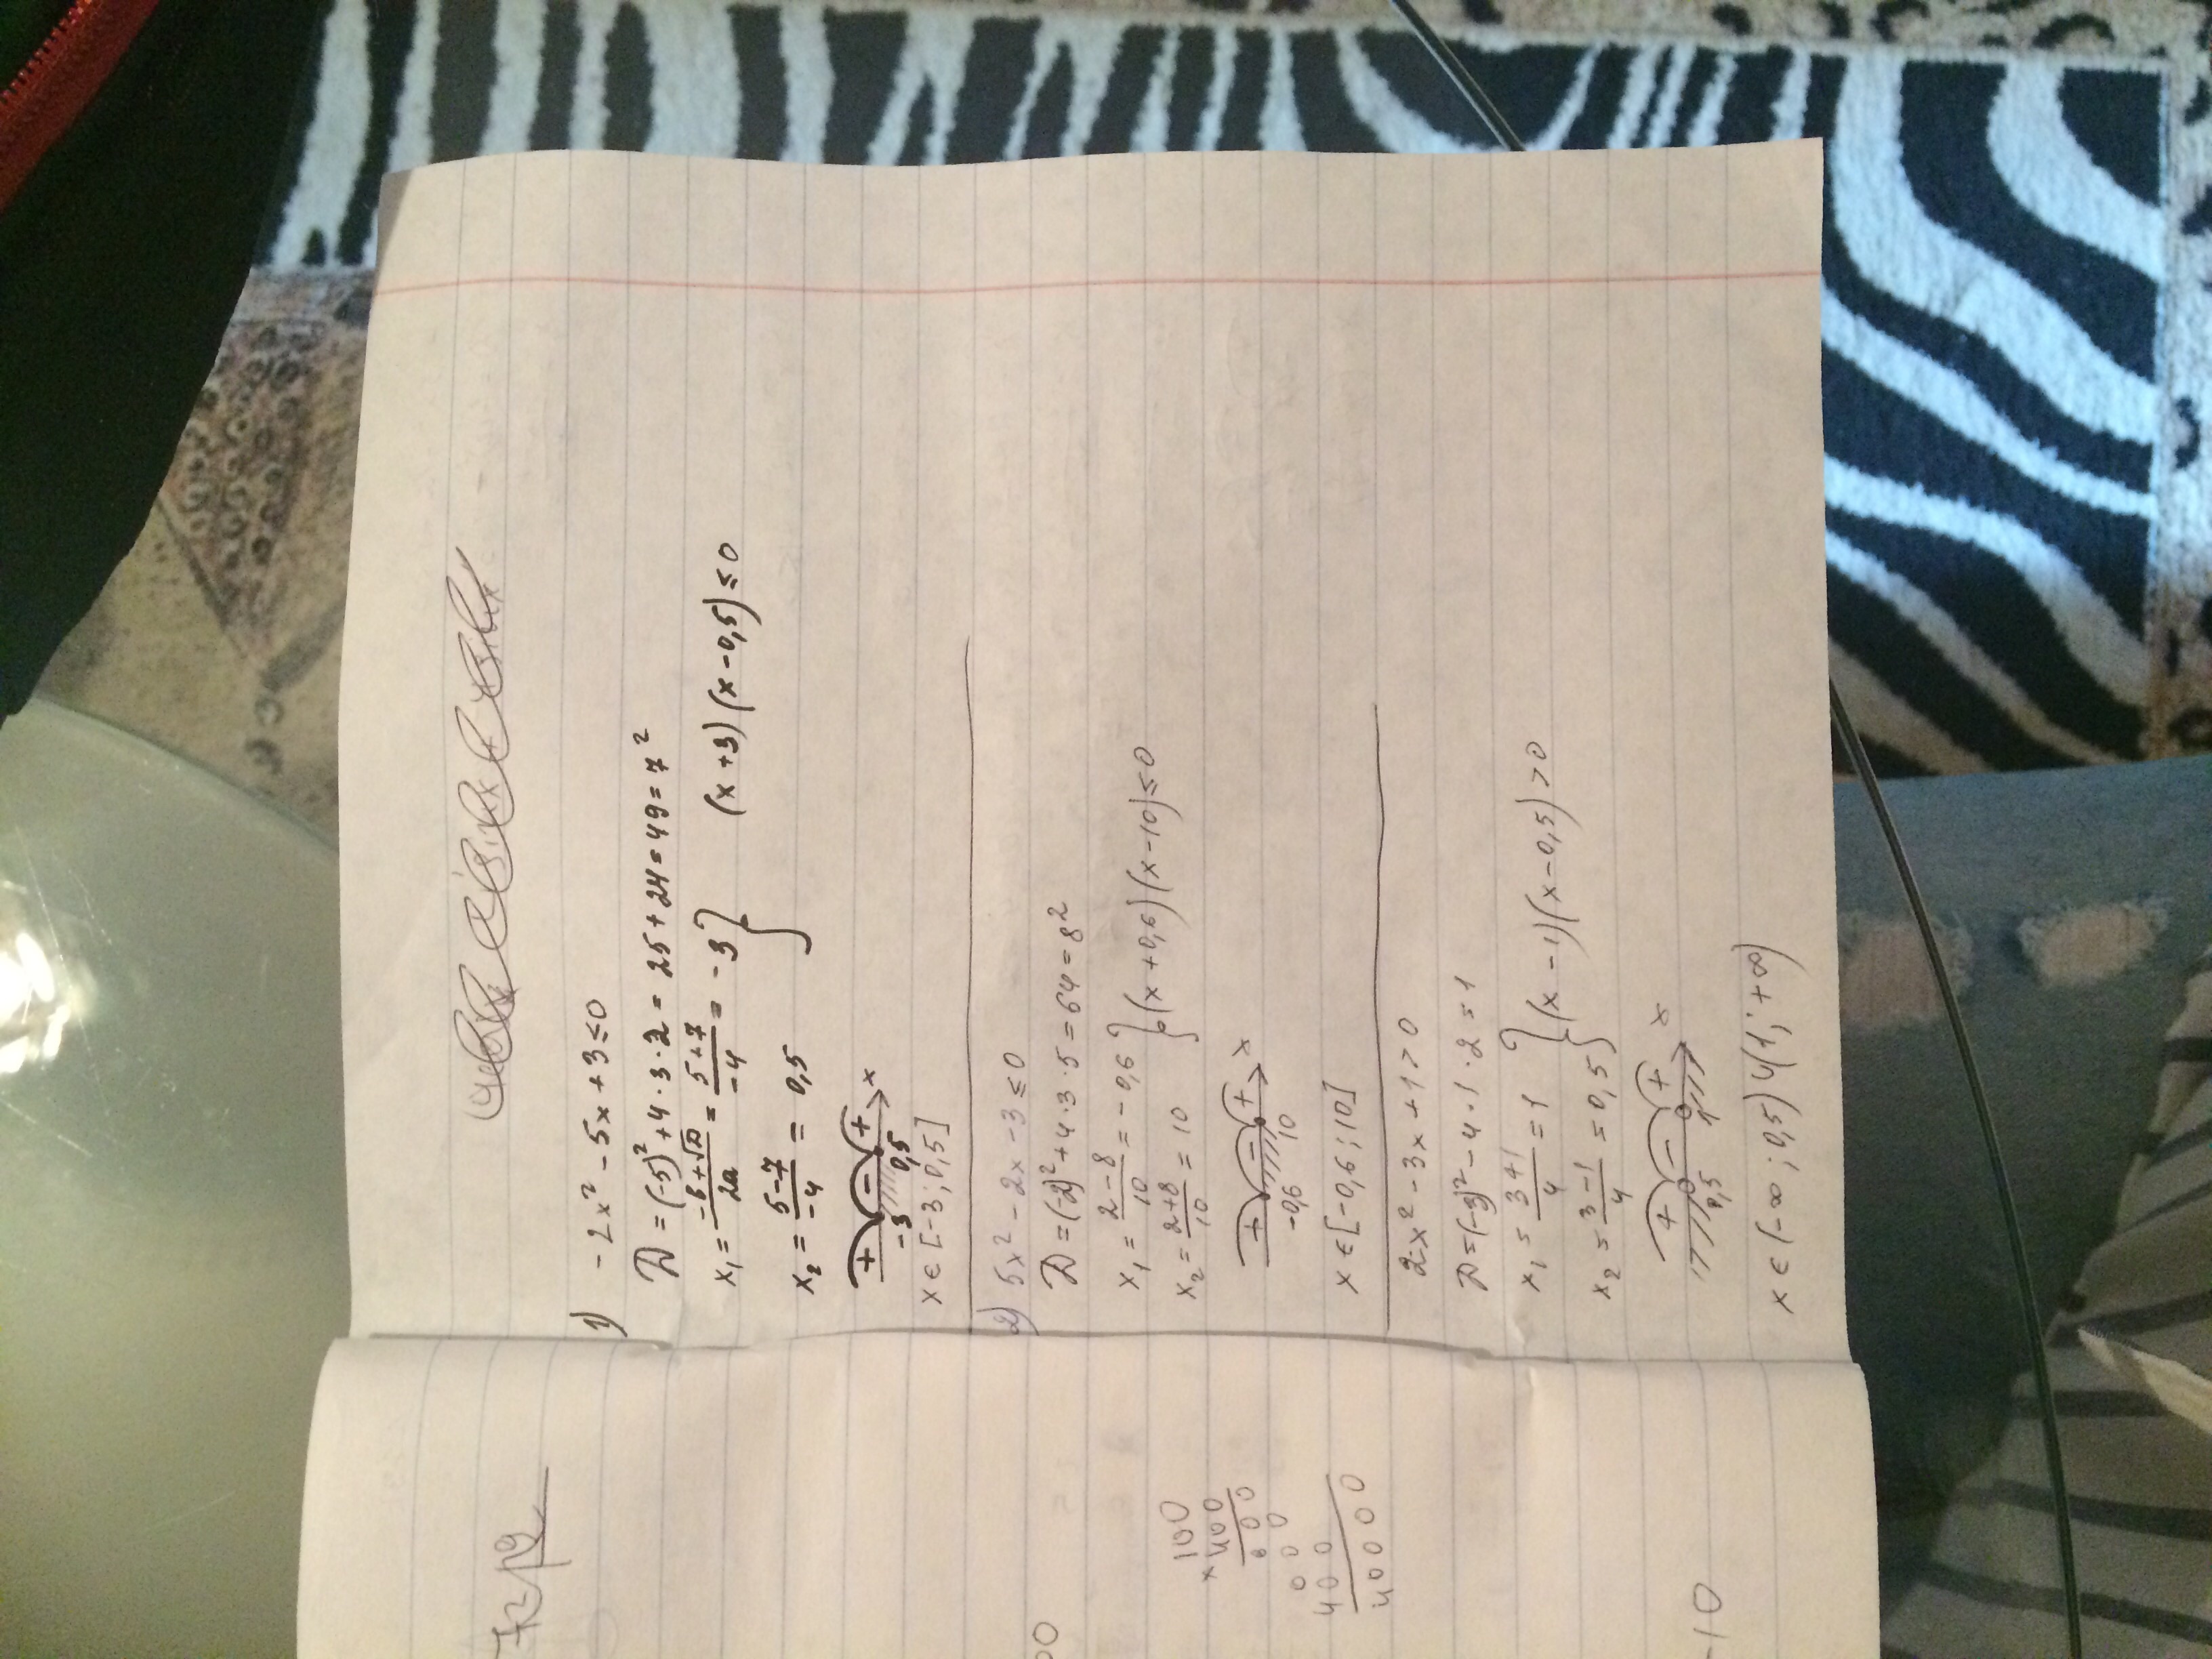 1) -2x² - 5x + 3 ≤ 0
D = (-5)² + 4·3·2 = 25 + 24 = 49 = 7²
x₁ = (-b + √D)/2a = (5+7)/-4 = -3 } (x+3)(x-0,5) ≤ 0
x₂ = (5-7)/-4 = 0,5
+ - + x
-3 0,5
x ∈ [-3; 0,5]
2) 5x² - 2x - 3 ≤ 0
D = (-2)² + 4·3·5 = 64 = 8²
x₁ = (2-8)/10 = -0,6 } (x+0,6)(x-10) ≤ 0
x₂ = (2+8)/10 = 10
+ - + x
-0,6 10
x ∈ [-0,6; 10]
2x² - 3x + 1 > 0
D = (-3)² - 4·1·2 = 1
x₁ = (3+1)/4 = 1 } (x-1)(x-0,5) > 0
x₂ = (3-1)/4 = 0,5
+ - + x
0,5 1
x ∈ (-∞; 0,5) ∪ (1; +∞)
00
× 100
400
000
000
400
40000
-10